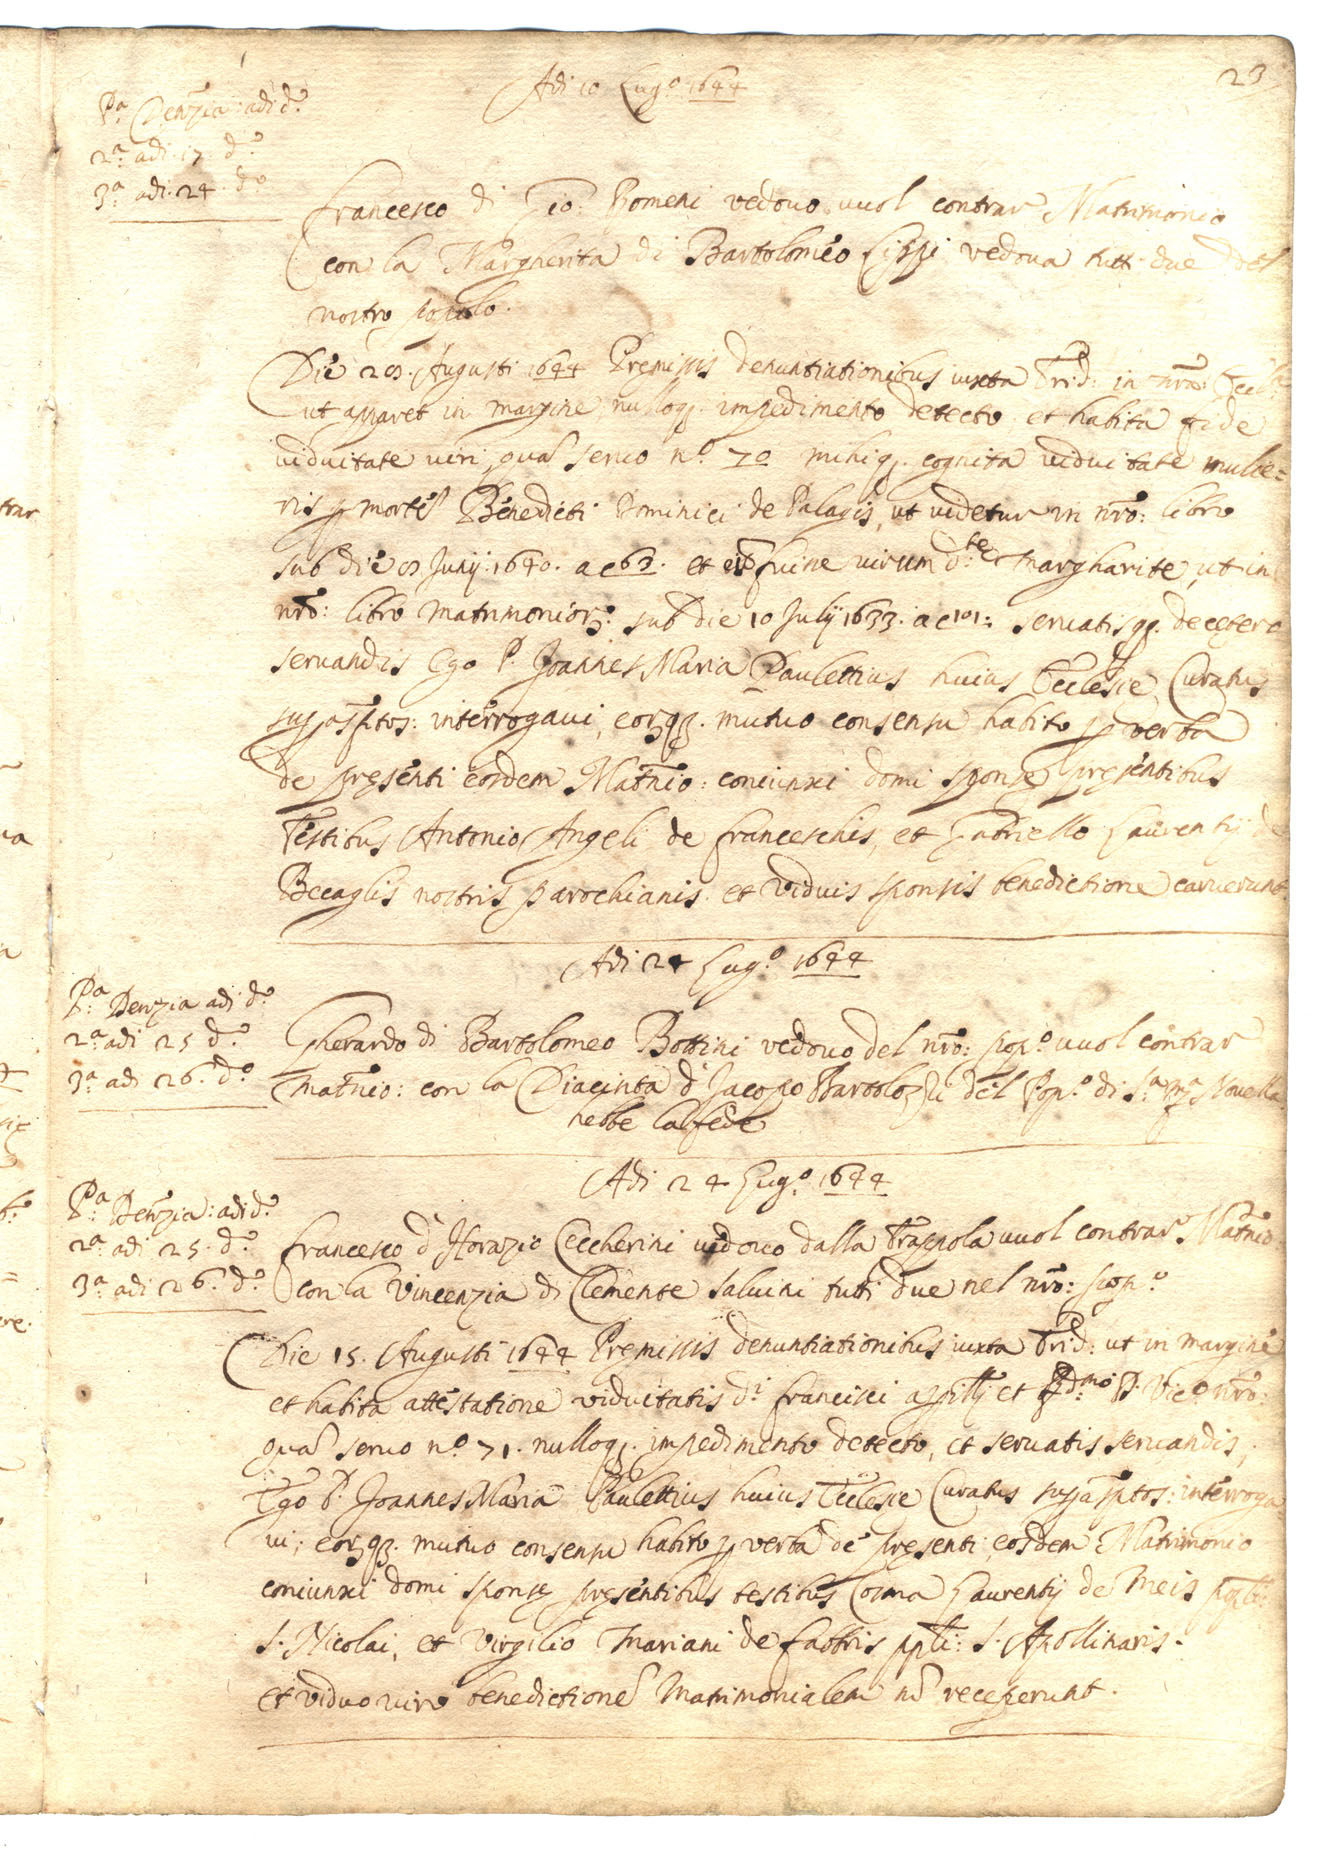 23
Adi 10 Lug.º 1644
Pª Denzia: adi d.º
2ª: adi. 17. d.º
3ª adi. 24. d.º
Francesco di Gio: Romeni vedovo vuol contrar Matrimonio
con la Margherita di Bartolomeo Lippi vedova tutti due del
nostro popolo.
Die 20. Augusti 1644 Premissis denuntiationibus iuxta Trid: in nrã: Eccla
ut apparet in margine, nulloq. impedimento detecto, et habita fide
viduitate viri, quã servo n.º 70 mihiq. cognita viduitate mulie=
ris p mortẽ Benedicti Dominici de Palagis, ut videtur in nrõ: libro
sub die Junij: 1640. a c 63. et fuisse virum d.te Margharite, ut in
nrõ: libro Matrimonior: sub die 10 Julij 1633. a c 101: servatisq. de cetero
servandis Ego P. Joannes Maria Paulettius huius Ecclesie Curatus
supasptos: interrogavi, eorq. mutuo consensu habito p verba
de presenti eosdem Matrio: coniunxi domi sponse presentibus
Testibus Antonio Angeli de Franceschis, et Gabriello Laurentij de
Becaglis nostris parochianis. et viduis sponsis benedictione caruerunt.
Adi 24 Lug.º 1644
Pª: Denzia adi d.º
2ª: adi 25 d.º
3ª adi 26. d.º
Gherardo di Bartolomeo Bottini vedovo del nrõ: pop.º vuol contrar
matrio: con la Diacinta d' Jacopo Bartolozzi del Pop.º di S.ª Mª Novella.
hebbe la fede
Adi 24 Lug.º 1644
Pª: Denzia: adi d.º
2ª: adi 25. d.º
3ª adi 26. d.º
Francesco d' Horazio Ceccherini vedovo dalla Trappola vuol contrar Matrio
con la Vincenzia di Clemente Salvini tutti due nel nrõ: pop.º
Die 15. Augusti 1644 Premissis denuntiationibus iuxta Trid: ut in margine
et habita attestatione viduitatis d.i Francisci a et P. Vic.º nrõ:
quã servo n.º 71. nulloq. impedimento detecto, et servatis servandis,
Ego P. Joannes Maria Paulettius huius Ecclesie Curatus supasptos: interroga
vi, eorq. mutuo consensu habito p verba de presenti eosdem Matrimonio
coniunxi domi sponse presentibus testibus Cosma Laurentij de Meis ppli:
S. Nicolai, et Virgilio Mariani de Fabbris ppli: S. Apollinaris.
et viduo viro benedictionẽ Matrimonialem nõ receperunt.